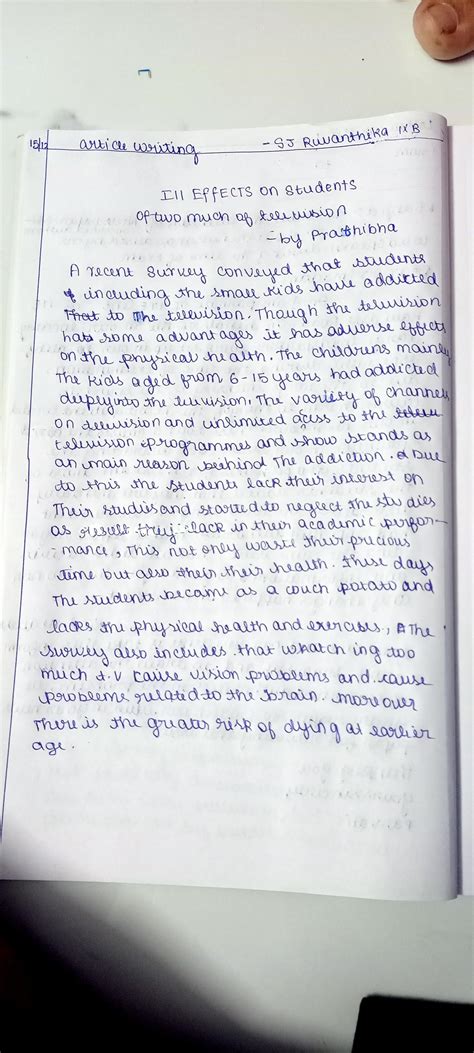 15/12 article writing - SJ Ruvanthika IX B
Ill Effects on Students
of two much of television
- by Prathibha
A recent survey conveyed that students
including the small kids have addicted
That to The television. Though the television
has some advantages it has adverse effects
on the physical health. The childrens mainly
The Kids aged from 6-15 years had addicted
deeply into the television, The variety of channels
on television and unlimited acess to the
television programmes and show stands as
an main reason behind The addiction. Due
to this the students lack their interest on
Their studies and started to neglect the stu dies
as result they lack in their academic perfor-
mance, This not only waste their precious
time but also their their health. These days
The students became as a couch potato and
lacks the physical health and exercises, The
survey also includes that whatch ing too
much t.v cause vision problems and cause
problems related to the brain. More over
There is the greater risk of dying at earlier
age.